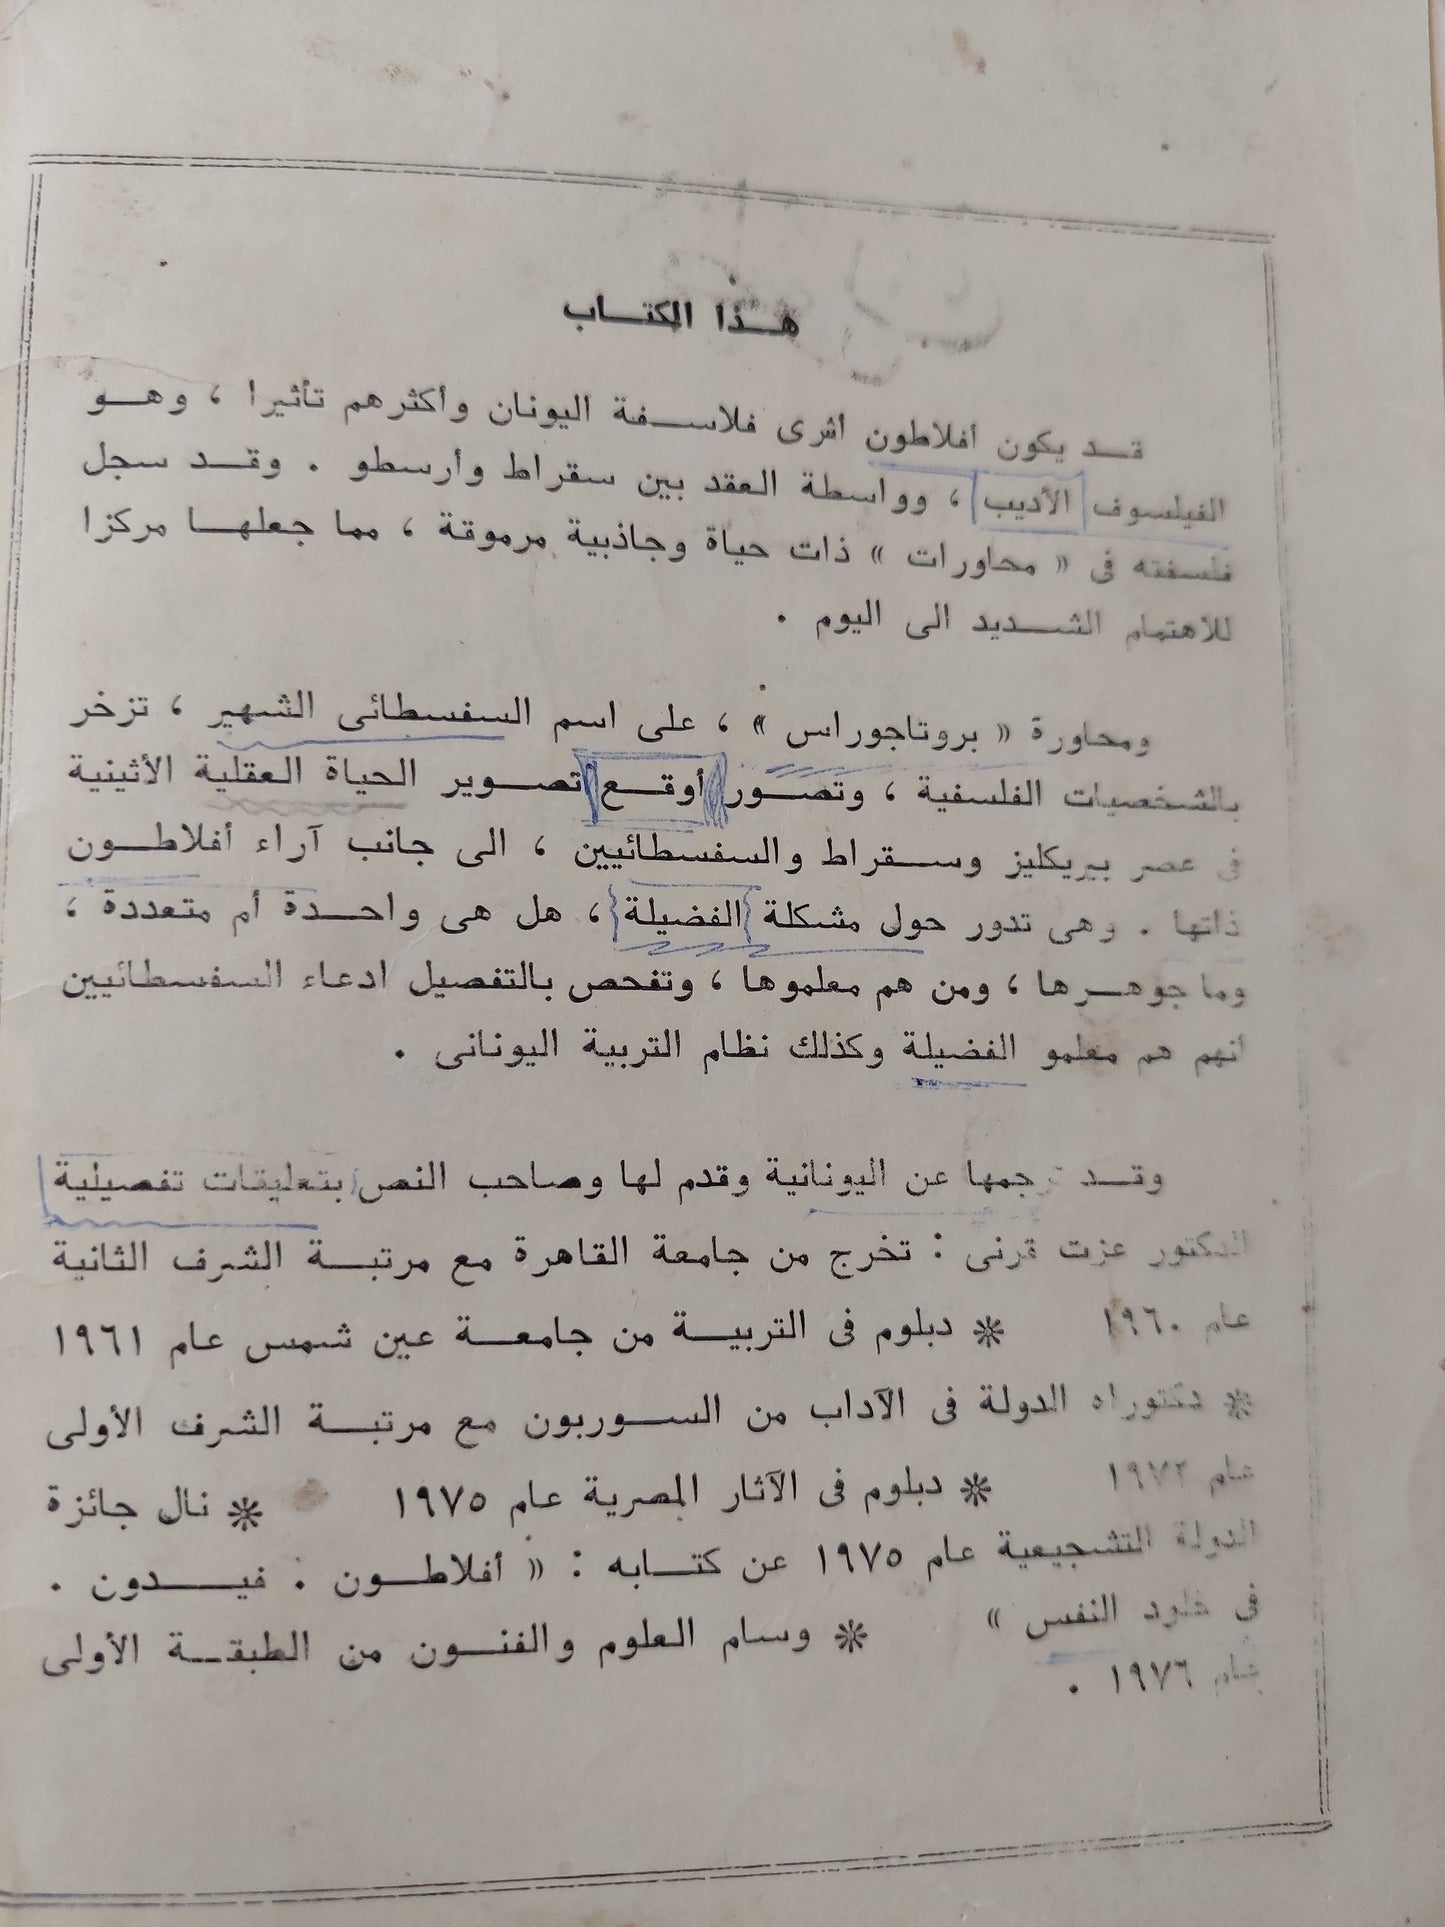 هذا الكتاب
قد يكون أفلاطون أثرى فلاسفة اليونان وأكثرهم تأثيرا ، وهو
الفيلسوف الأديب ، وواسطة العقد بين سقراط وأرسطو . وقد سجل
فلسفته فى « محاورات » ذات حياة وجاذبية مرموقة ، مما جعلها مركزا
للاهتمام الشديد الى اليوم .
ومحاورة « بروتاجوراس » ، على اسم السفسطائى الشهير ، تزخر
بالشخصيات الفلسفية ، وتصور أوقع تصوير الحياة العقلية الأثينية
فى عصر بيريكليز وسقراط والسفسطائيين ، الى جانب آراء أفلاطون
ذاتها . وهى تدور حول مشكلة الفضيلة ، هل هى واحدة أم متعددة ،
وما جوهرها ، ومن هم معلموها ، وتفحص بالتفصيل ادعاء السفسطائيين
أنهم هم معلمو الفضيلة وكذلك نظام التربية اليونانى .
وقد ترجمها عن اليونانية وقدم لها وصاحب النص بتعليقات تفصيلية
الدكتور عزت قرنى : تخرج من جامعة القاهرة مع مرتبة الشرف الثانية
عام ١٩٦٠ * دبلوم فى التربية من جامعة عين شمس عام ١٩٦١
* دكتوراه الدولة فى الآداب من السوربون مع مرتبة الشرف الأولى
عام ١٩٧٢ * دبلوم فى الآثار المصرية عام ١٩٧٥ * نال جائزة
الدولة التشجيعية عام ١٩٧٥ عن كتابه : « أفلاطون . فيدون .
فى خلود النفس » * وسام العلوم والفنون من الطبقة الأولى
عام ١٩٧٦ .